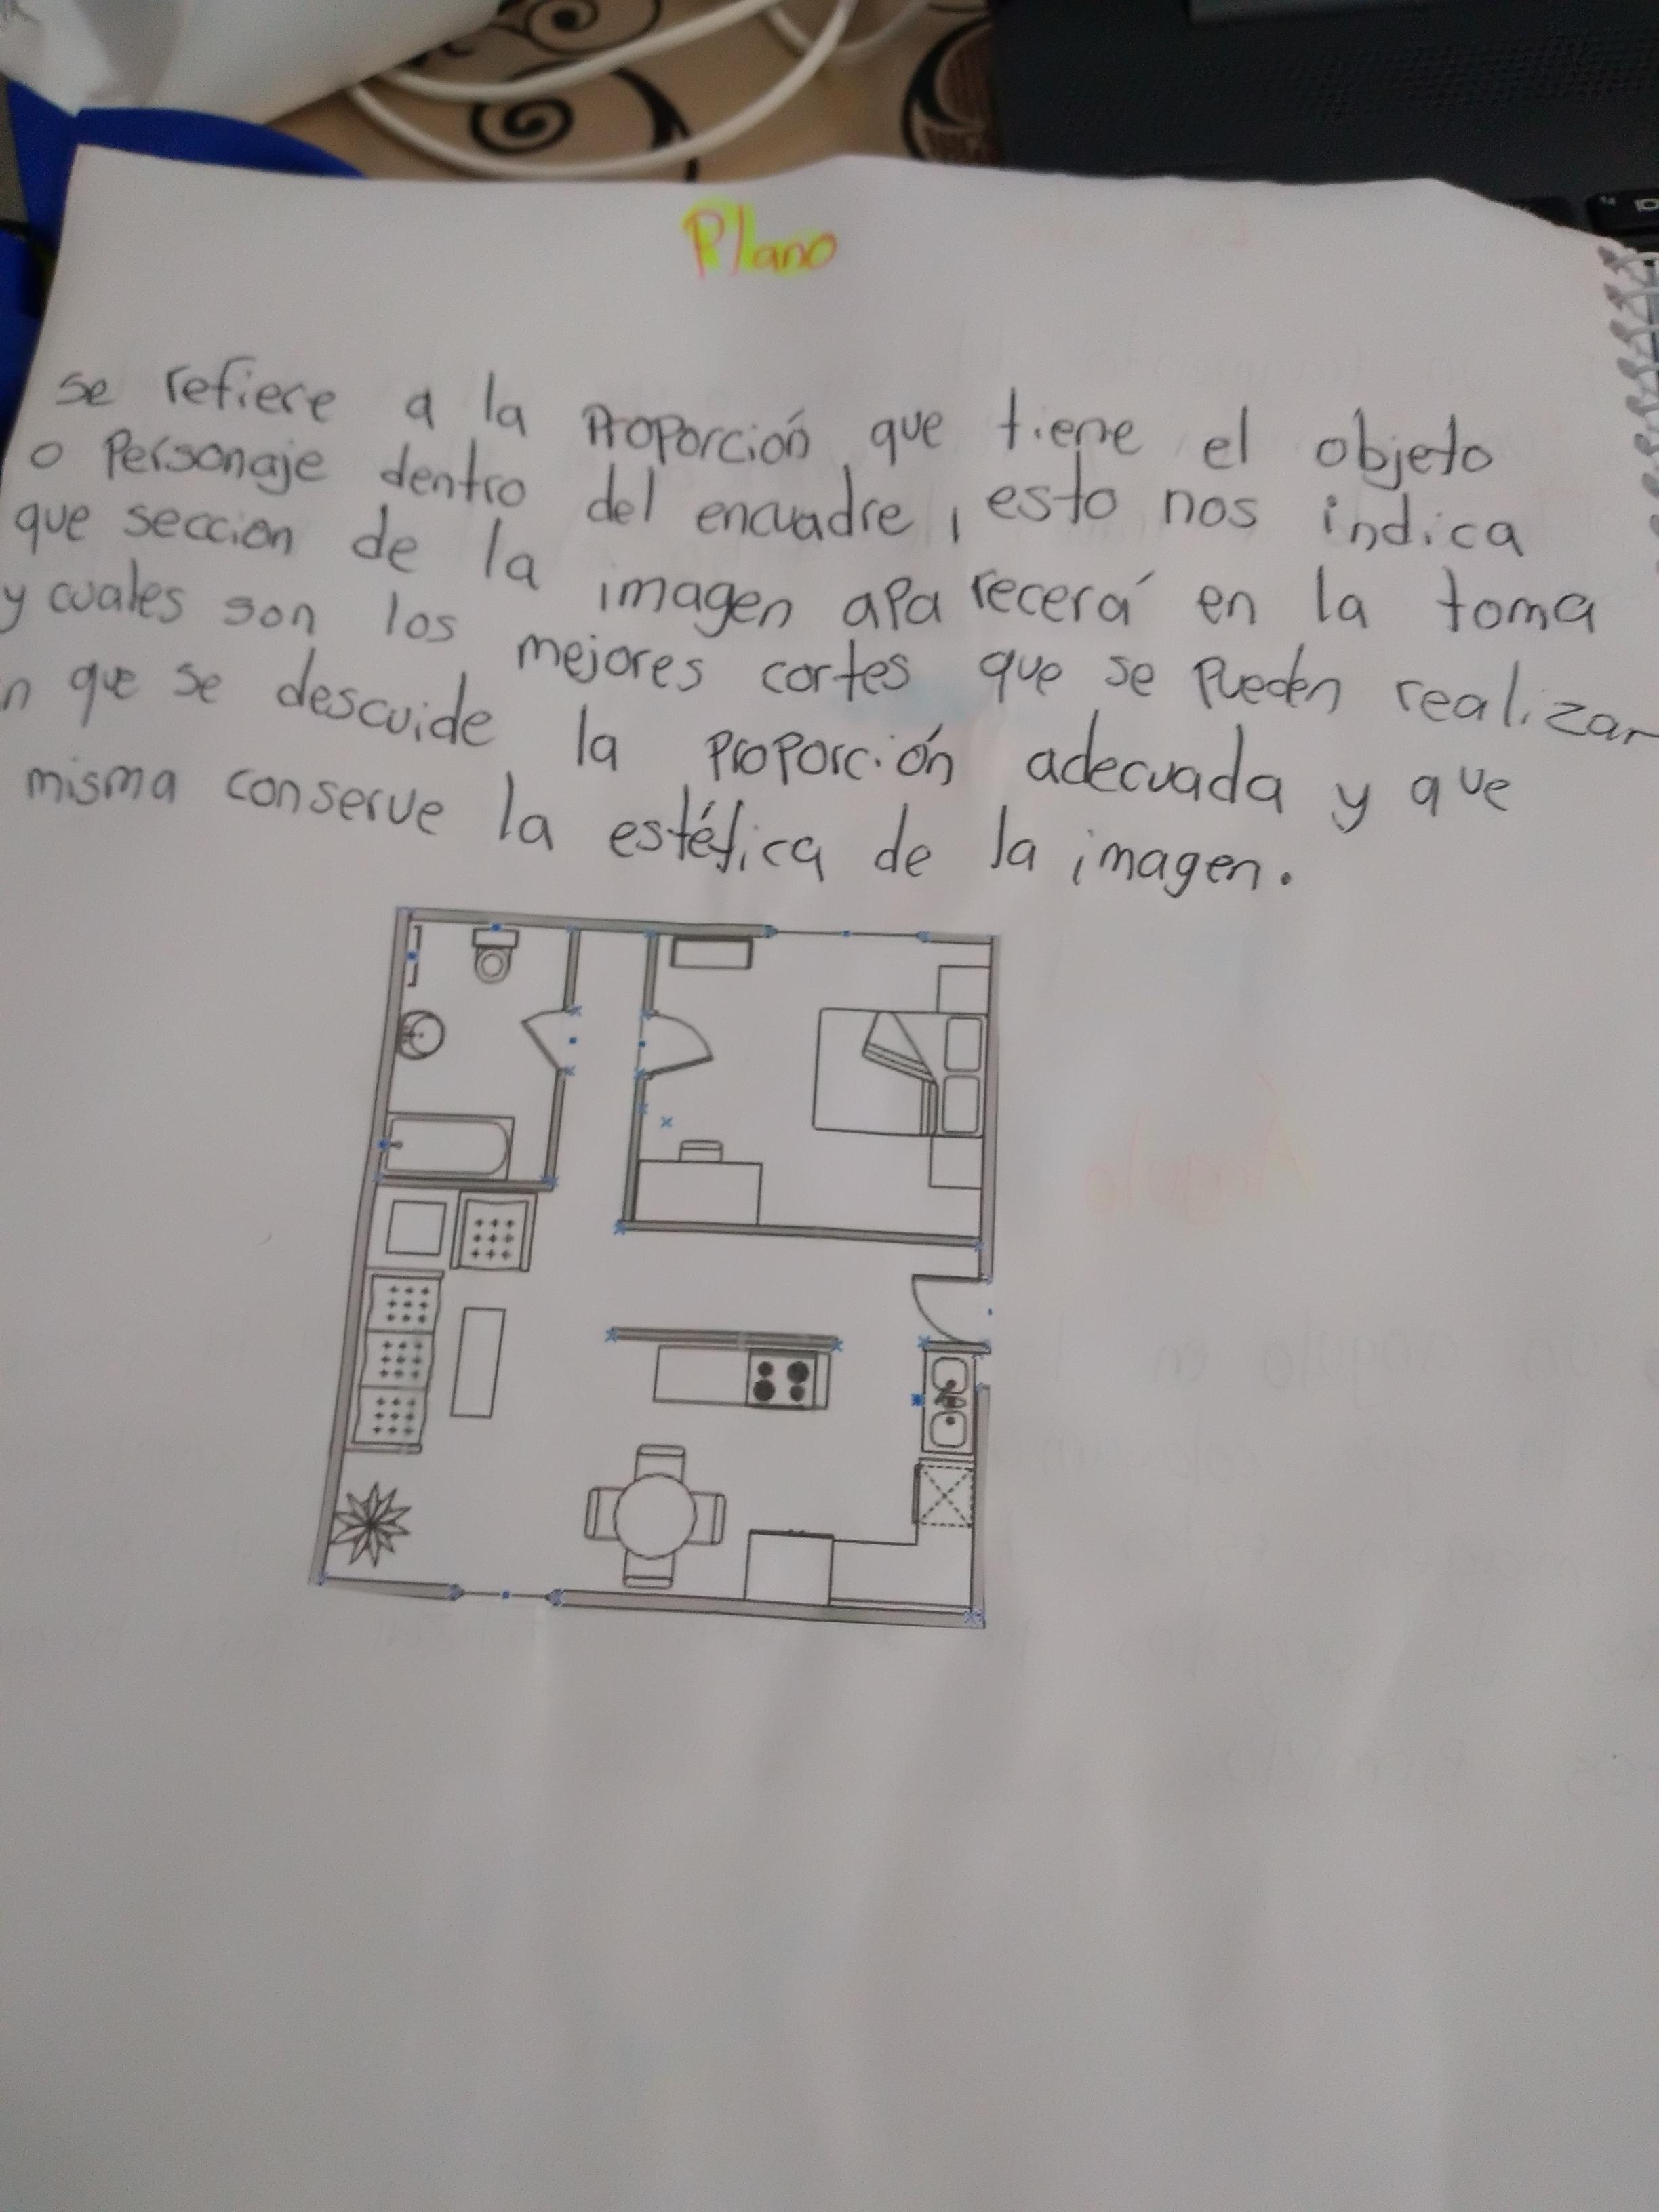 Plano
se refiere a la Proporción que tiene el objeto
o Personaje dentro del encuadre, esto nos indica
que seccion de la imagen aparecerá en la toma
y cuales son los mejores cortes que se Pueden realizar
n que se descuide la proporción adecuada y que
misma conserve la estética de la imagen.